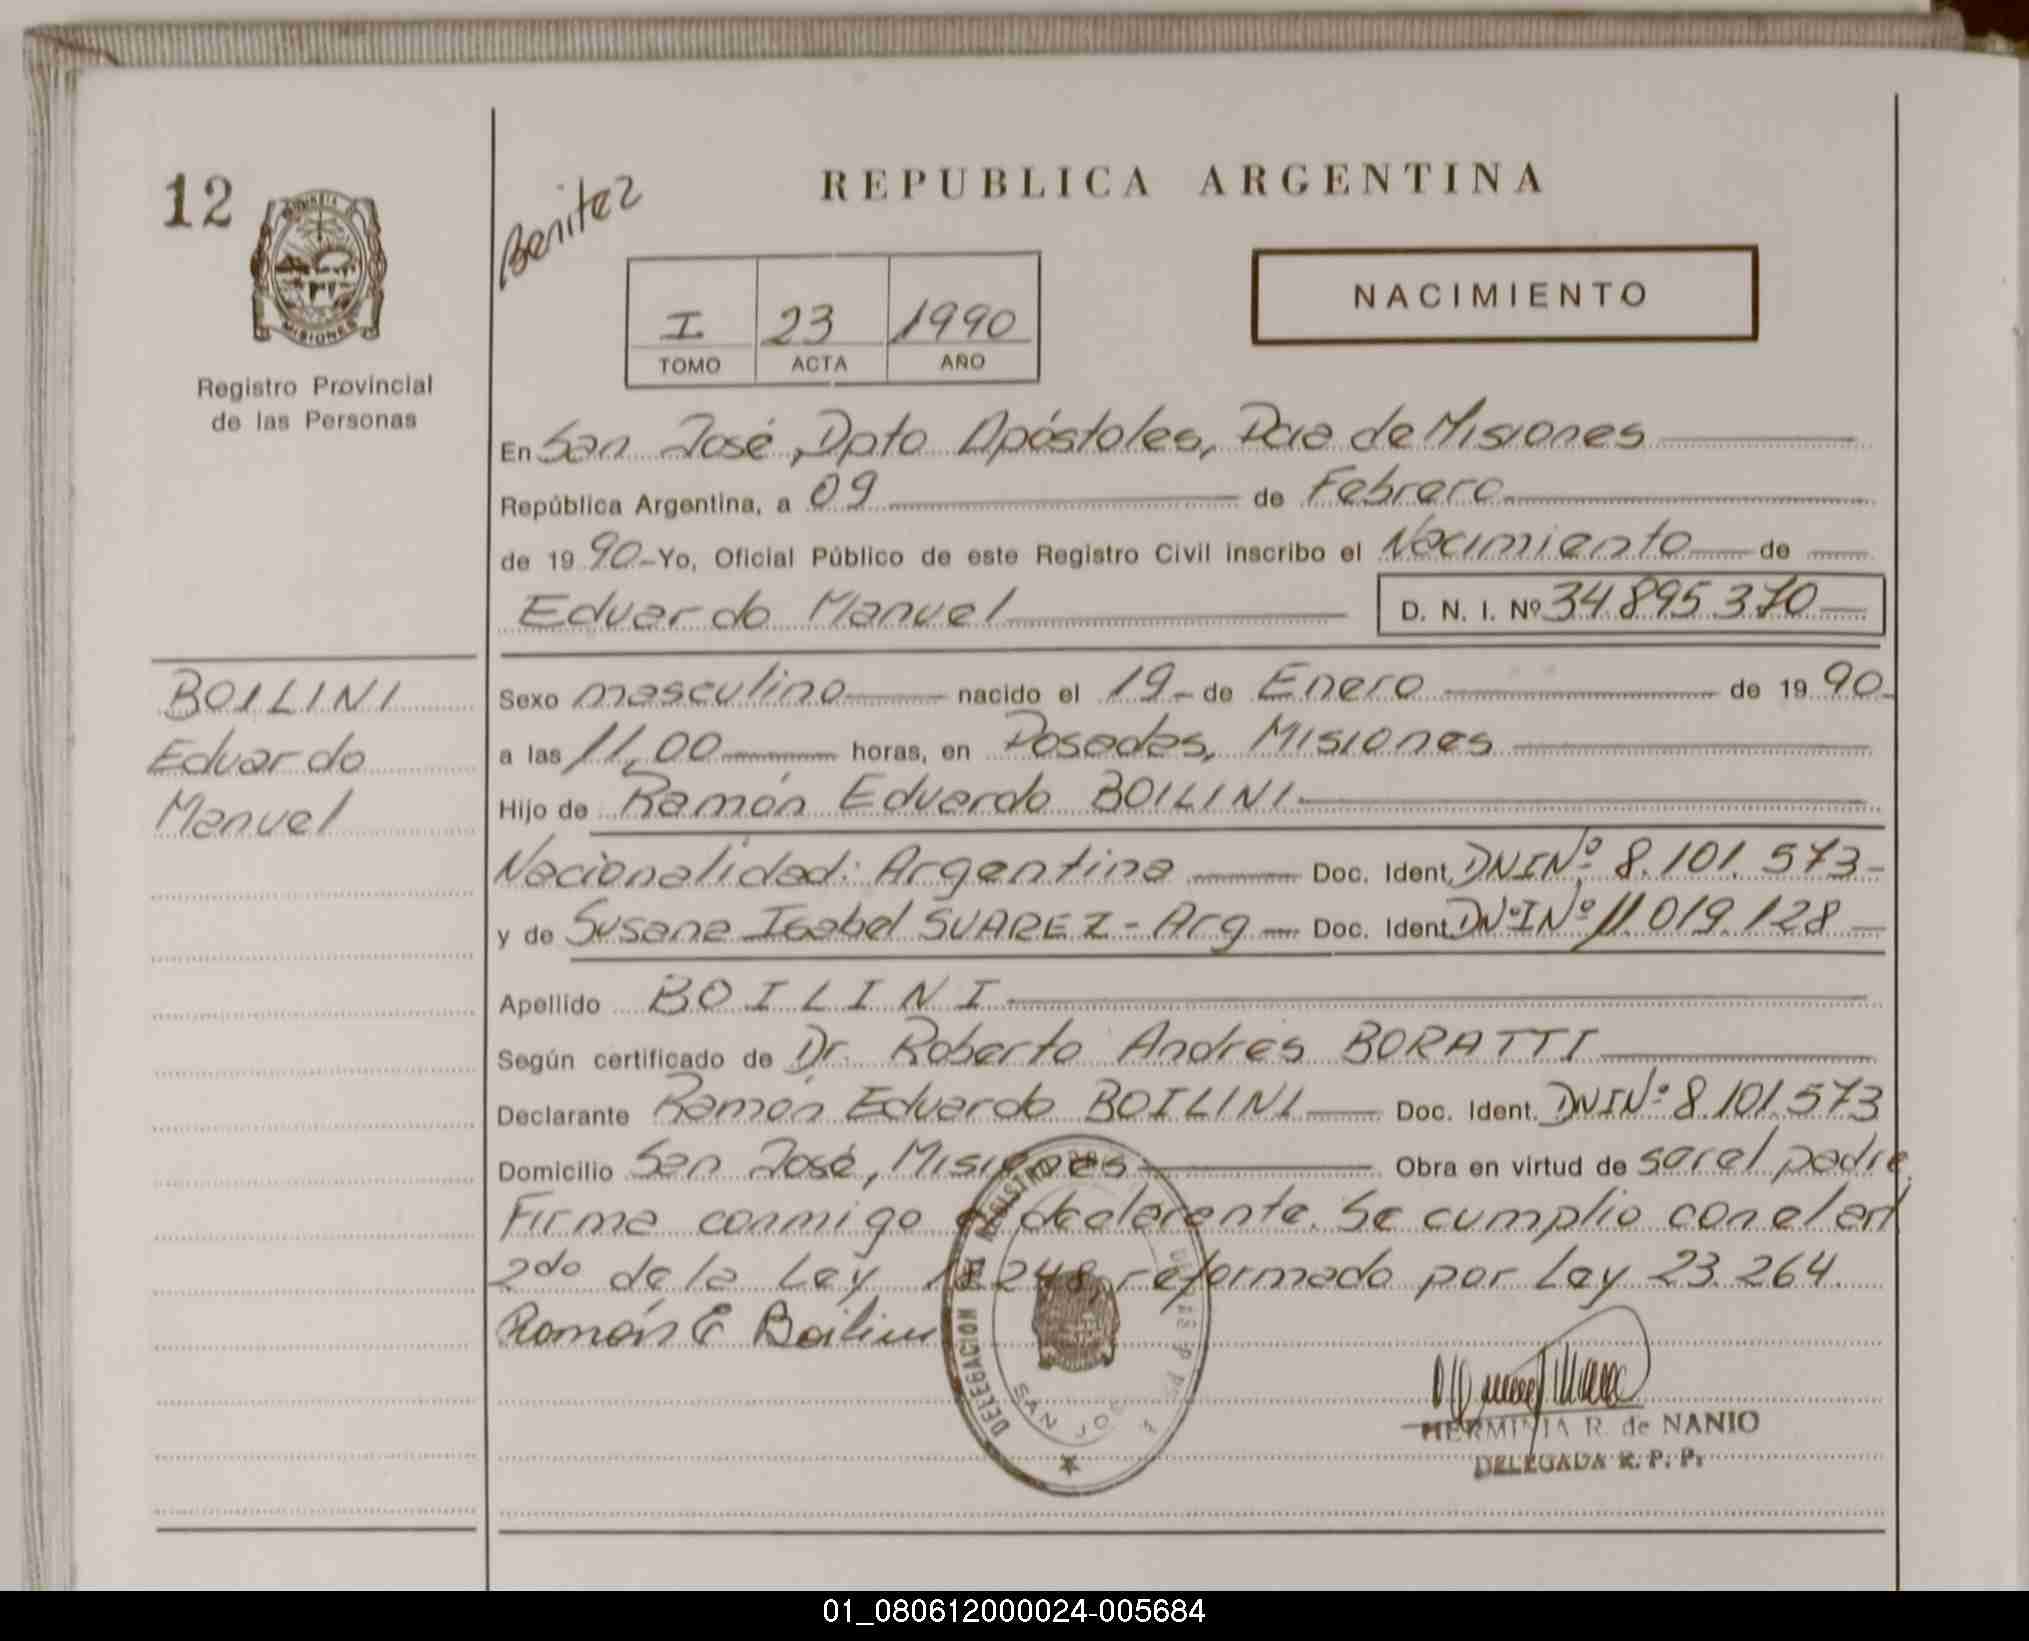 12
MISIONES
Registro Provincial
de las Personas
Benitez
REPUBLICA ARGENTINA
I 23 1990
TOMO ACTA AÑO
NACIMIENTO
En San José, Dpto Apóstoles, Pcia de Misiones
República Argentina, a 09 de Febrero
de 19 90 - Yo, Oficial Público de este Registro Civil inscribo el Nacimiento de
Eduardo Manuel D. N. I. Nº 34.895.370
BOILINI
Eduardo
Manuel
Sexo masculino nacido el 19 - de Enero de 19 90 -
a las 11,00 horas, en Posadas, Misiones
Hijo de Ramón Eduardo BOILINI
Nacionalidad: Argentina Doc. Ident. DNI Nº 8.101.573 -
y de Susana Isabel SUAREZ - Arg - Doc. Ident. DNI Nº 11.019.128
Apellido BOILINI
Según certificado de Dr. Roberto Andrés BORATTI
Declarante Ramón Eduardo BOILINI Doc. Ident. DNI Nº 8.101.573
Domicilio San José, Misiones Obra en virtud de ser el padre.
Firma conmigo el declarante. Se cumplio con el art
2do de la Ley 18.248, reformado por Ley 23.264.
Ramón E Boilini
DELEGACION DEL REGISTRO
SAN JOSE
HERMINIA R. de NANIO
DELEGADA R. P. P.
01_080612000024-005684